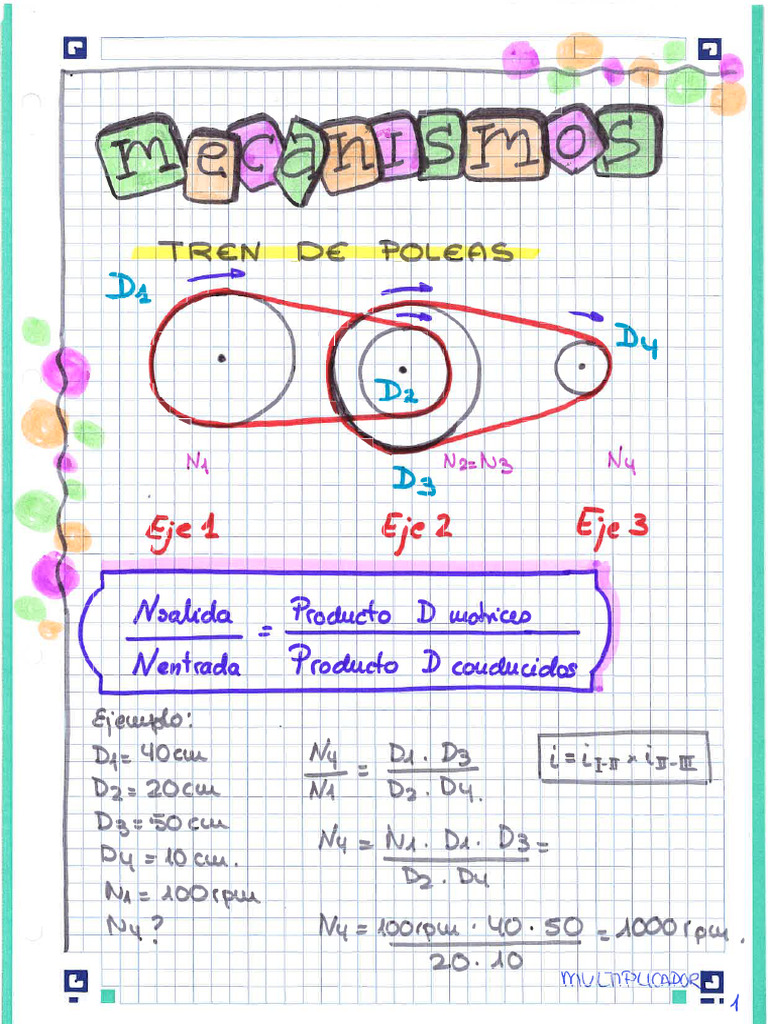 mecanismos
TREN DE POLEAS
D1
D4
D2
N1
N2=N3
N4
D3
Eje 1
Eje 2
Eje 3
Nsalida / Nentrada = Producto D motrices / Producto D conducidos
Ejemplo:
D1= 40cm
D2= 20cm
D3= 50cm
D4 = 10 cm.
N1 = 100rpm
N4?
N4 / N1 = D1 . D3 / D2 . D4.
i = i I-II x i II-III
N4 = N1 . D1 . D3 / D2 . D4 =
N4 = 100rpm . 40 . 50 / 20 . 10 = 1000 rpm.
MULTIPLICADOR
1